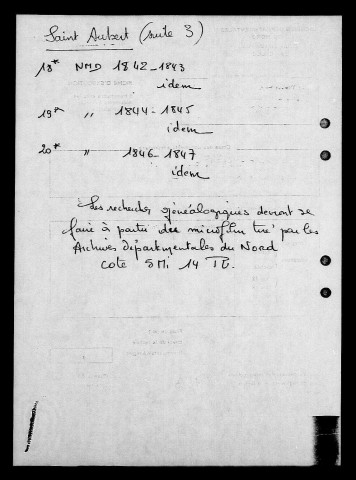 Saint Aubert (suite 3)
18* NMD 1842-1843
idem
19* " 1844-1845
idem
20* " 1846-1847
idem
Les recherches généalogiques devront se
faire à partir des microfilm tiré par les
Archives départementales du Nord
cote 5Mi 14